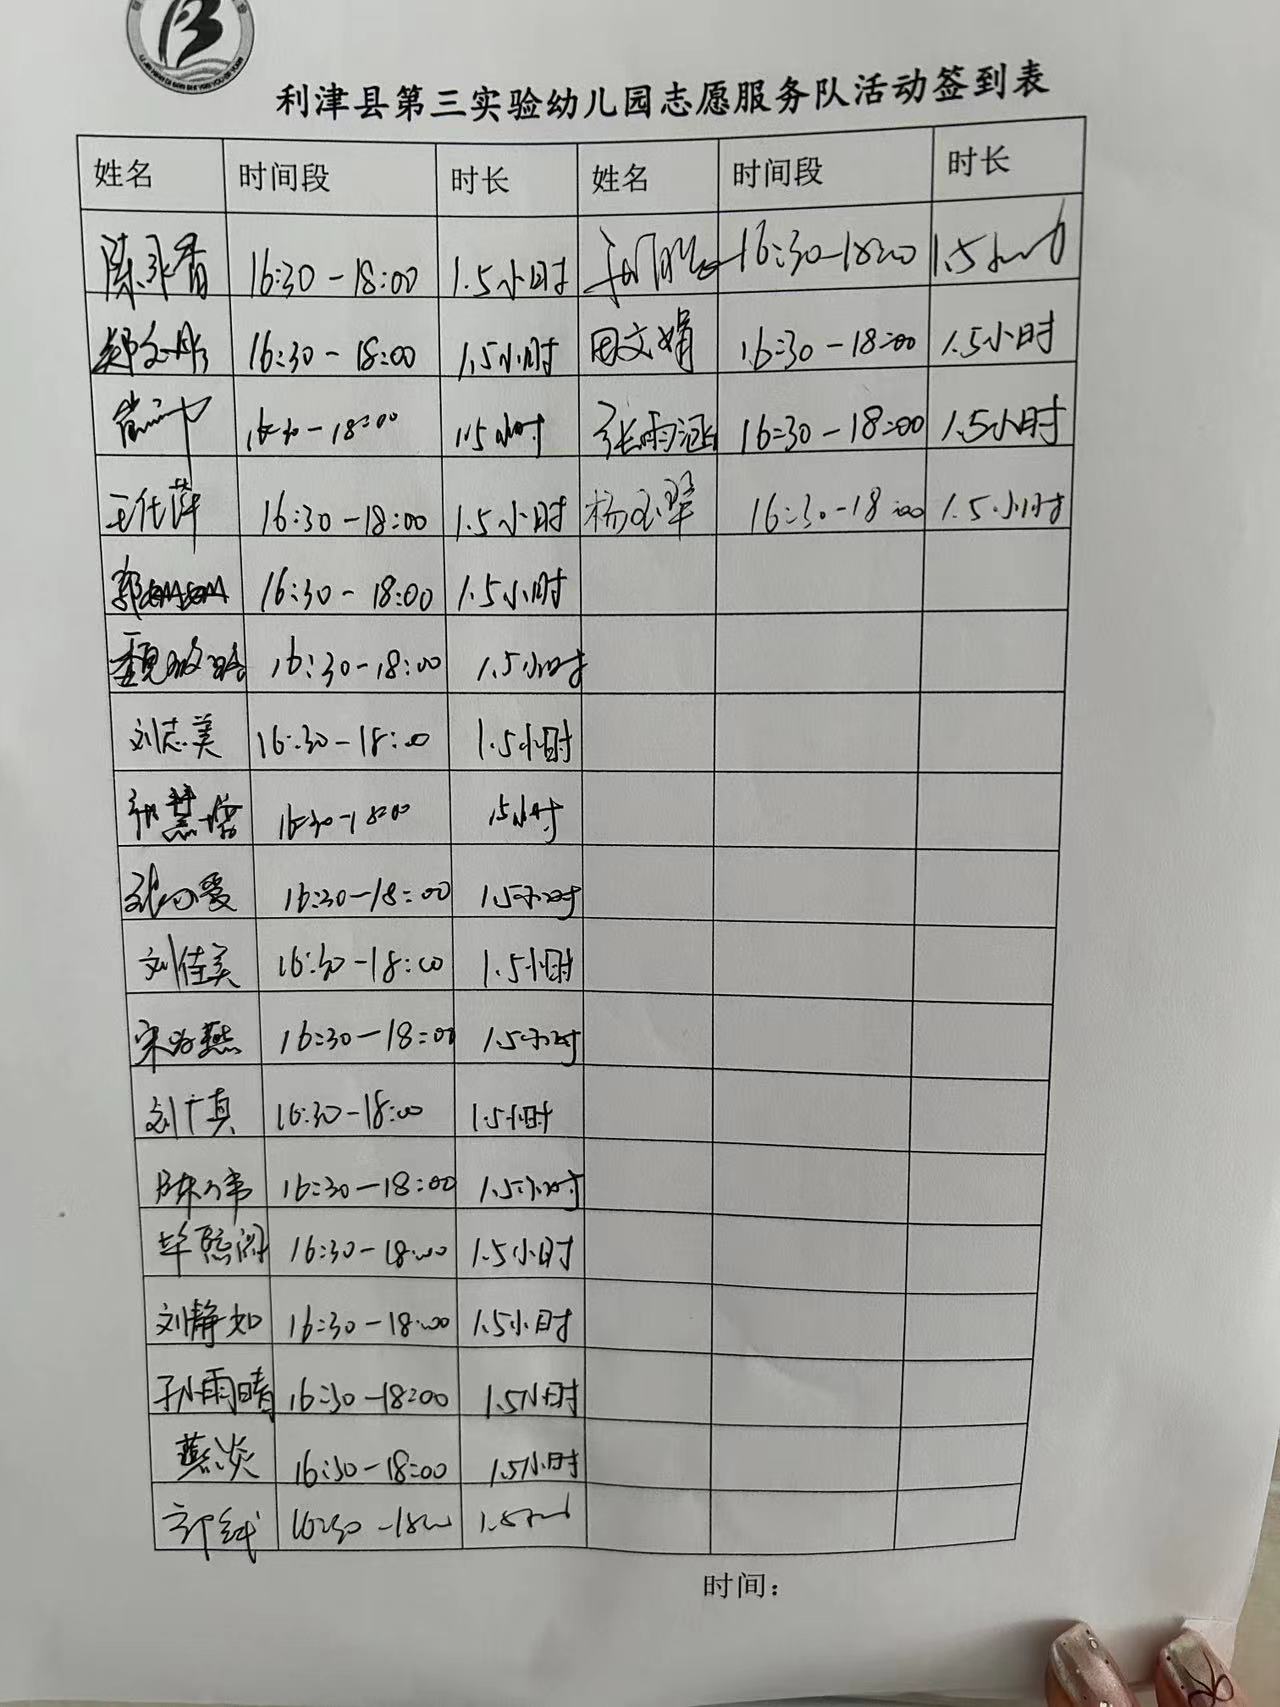 利津县第三实验幼儿园志愿服务队活动签到表
姓名 时间段 时长 姓名 时间段 时长
陈永香 16:30-18:00 1.5小时 16:30-18:00 1.5小时
郑文彤 16:30-18:00 1.5小时 田文娟 16:30-18:00 1.5小时
16:30-18:00 1.5小时 张雨涵 16:30-18:00 1.5小时
王代萍 16:30-18:00 1.5小时 杨玉翠 16:30-18:00 1.5小时
郭 16:30-18:00 1.5小时
魏 16:30-18:00 1.5小时
刘志美 16:30-18:00 1.5小时
张慧 16:30-18:00 1.5小时
16:30-18:00 1.5小时
刘佳美 16:30-18:00 1.5小时
宋 燕 16:30-18:00 1.5小时
刘广真 16:30-18:00 1.5小时
陈 16:30-18:00 1.5小时
毕 16:30-18:00 1.5小时
刘静如 16:30-18:00 1.5小时
孙雨晴 16:30-18:00 1.5小时
燕炎 16:30-18:00 1.5小时
16:30-18:00 1.5小时
时间：